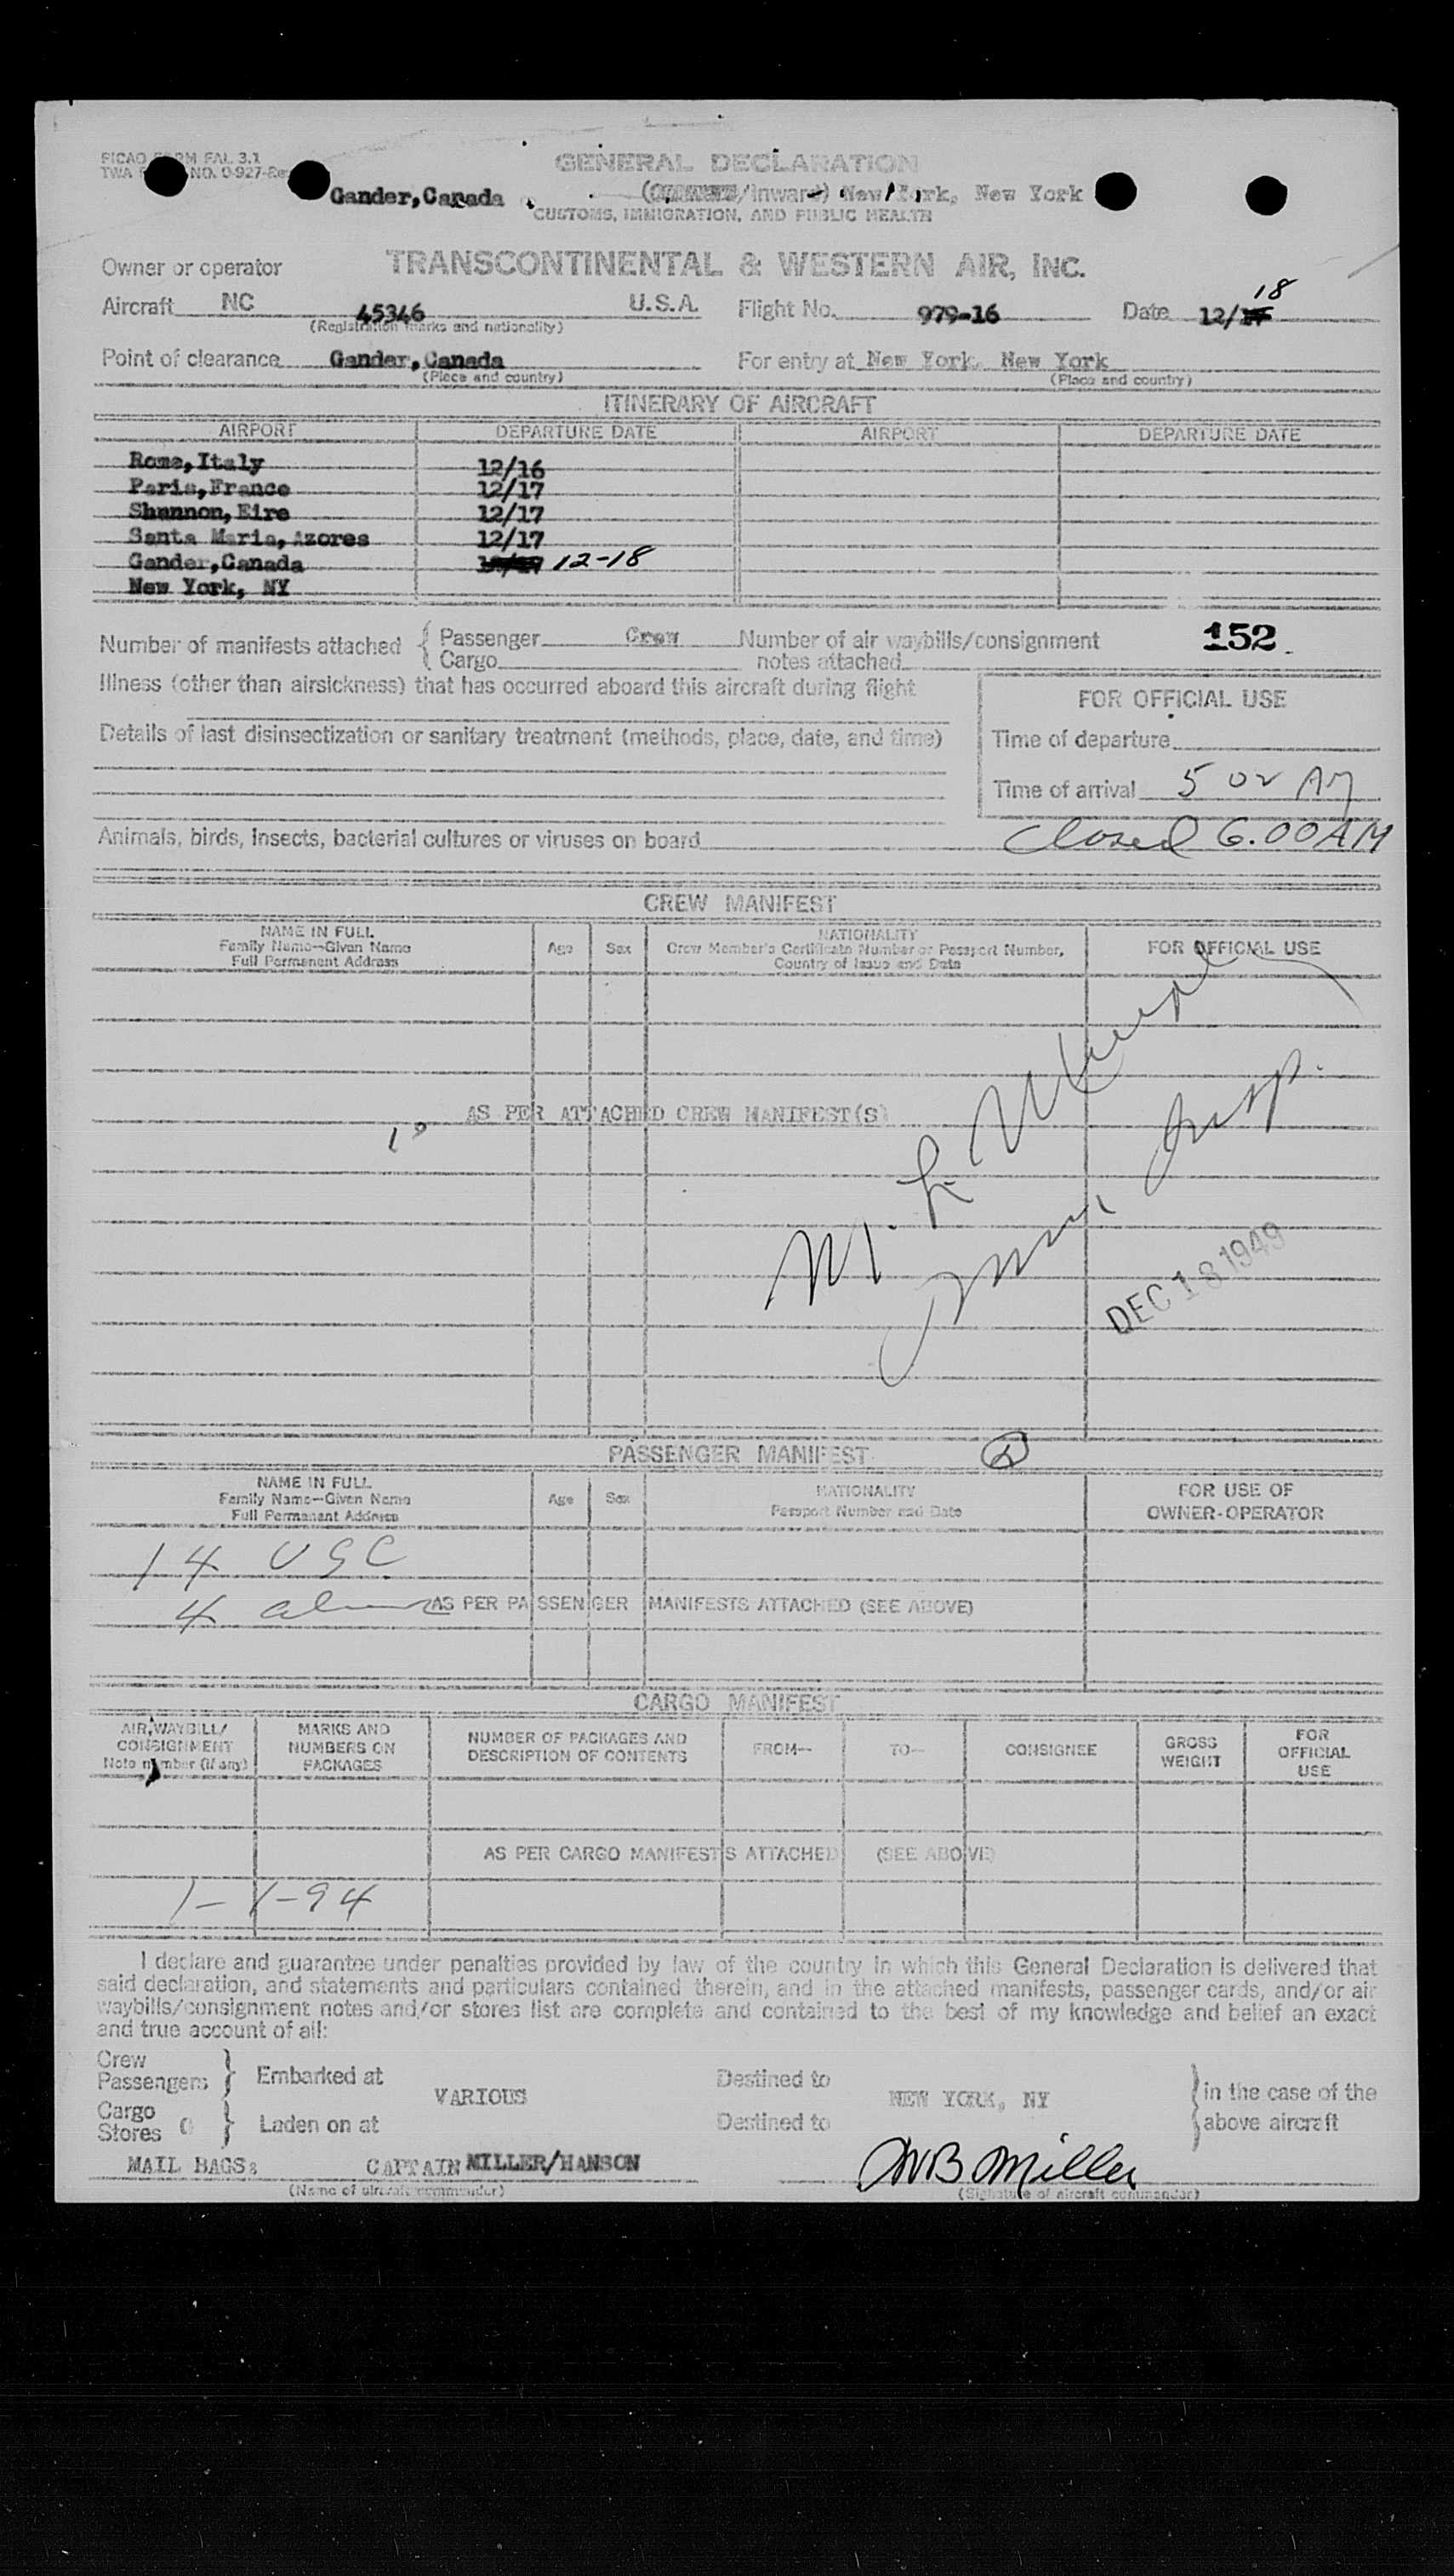 PICAO FORM FAL 3.1
TWA NO. 0-927-Re
GENERAL DECLARATION
Gander,Canada (/Inward) New York, New York
CUSTOMS, IMMIGRATION, AND PUBLIC HEALTH
Owner or operator TRANSCONTINENTAL & WESTERN AIR, INC.
18
Aircraft NC 45346 U.S.A. Flight No. 979-16 Date 12/17
(Registration marks and nationality)
Point of clearance Gander,Canada For entry at New York, New York
(Place and country) (Place and country)
ITINERARY OF AIRCRAFT
AIRPORT DEPARTURE DATE AIRPORT DEPARTURE DATE
Rome,Italy 12/16
Paris,France 12/17
Shannon,Eire 12/17
Santa Maria,Azores 12/17
Gander,Canada 12-18
New York, NY
Number of manifests attached { Passenger Crew Number of air waybills/consignment 152
Cargo notes attached
Illness (other than airsickness) that has occurred aboard this aircraft during flight
FOR OFFICIAL USE
Details of last disinsectization or sanitary treatment (methods, place, date, and time)
Time of departure
Time of arrival 5 02 AM
Animals, birds, insects, bacterial cultures or viruses on board Closed 6.00 AM
CREW MANIFEST
NAME IN FULL
Family Name—Given Name
Full Permanent Address
Age Sex
NATIONALITY
Crew Member's Certificate Number or Passport Number,
Country of Issue and Date
FOR OFFICIAL USE
AS PER ATTACHED CREW MANIFEST(S)
10
Insp.
DEC 18 1949
PASSENGER MANIFEST
NAME IN FULL
Family Name—Given Name
Full Permanent Address
Age Sex
NATIONALITY
Passport Number and Date
FOR USE OF
OWNER-OPERATOR
14 USC
4 aliens AS PER PASSENGER MANIFESTS ATTACHED (SEE ABOVE)
CARGO MANIFEST
AIR WAYBILL/
CONSIGNMENT
Note number (if any)
MARKS AND
NUMBERS ON
PACKAGES
NUMBER OF PACKAGES AND
DESCRIPTION OF CONTENTS
FROM— TO— CONSIGNEE
GROSS
WEIGHT
FOR
OFFICIAL
USE
AS PER CARGO MANIFESTS ATTACHED (SEE ABOVE)
1-1-94
I declare and guarantee under penalties provided by law of the country in which this General Declaration is delivered that
said declaration, and statements and particulars contained therein, and in the attached manifests, passenger cards, and/or air
waybills/consignment notes and/or stores list are complete and contained to the best of my knowledge and belief an exact
and true account of all:
Crew
Passengers } Embarked at VARIOUS Destined to NEW YORK, NY } in the case of the
Cargo
Stores } Laden on at Destined to above aircraft
MAIL BAGS: CAPTAIN MILLER/HANSON WB Miller
(Name of aircraft commander) (Signature of aircraft commander)